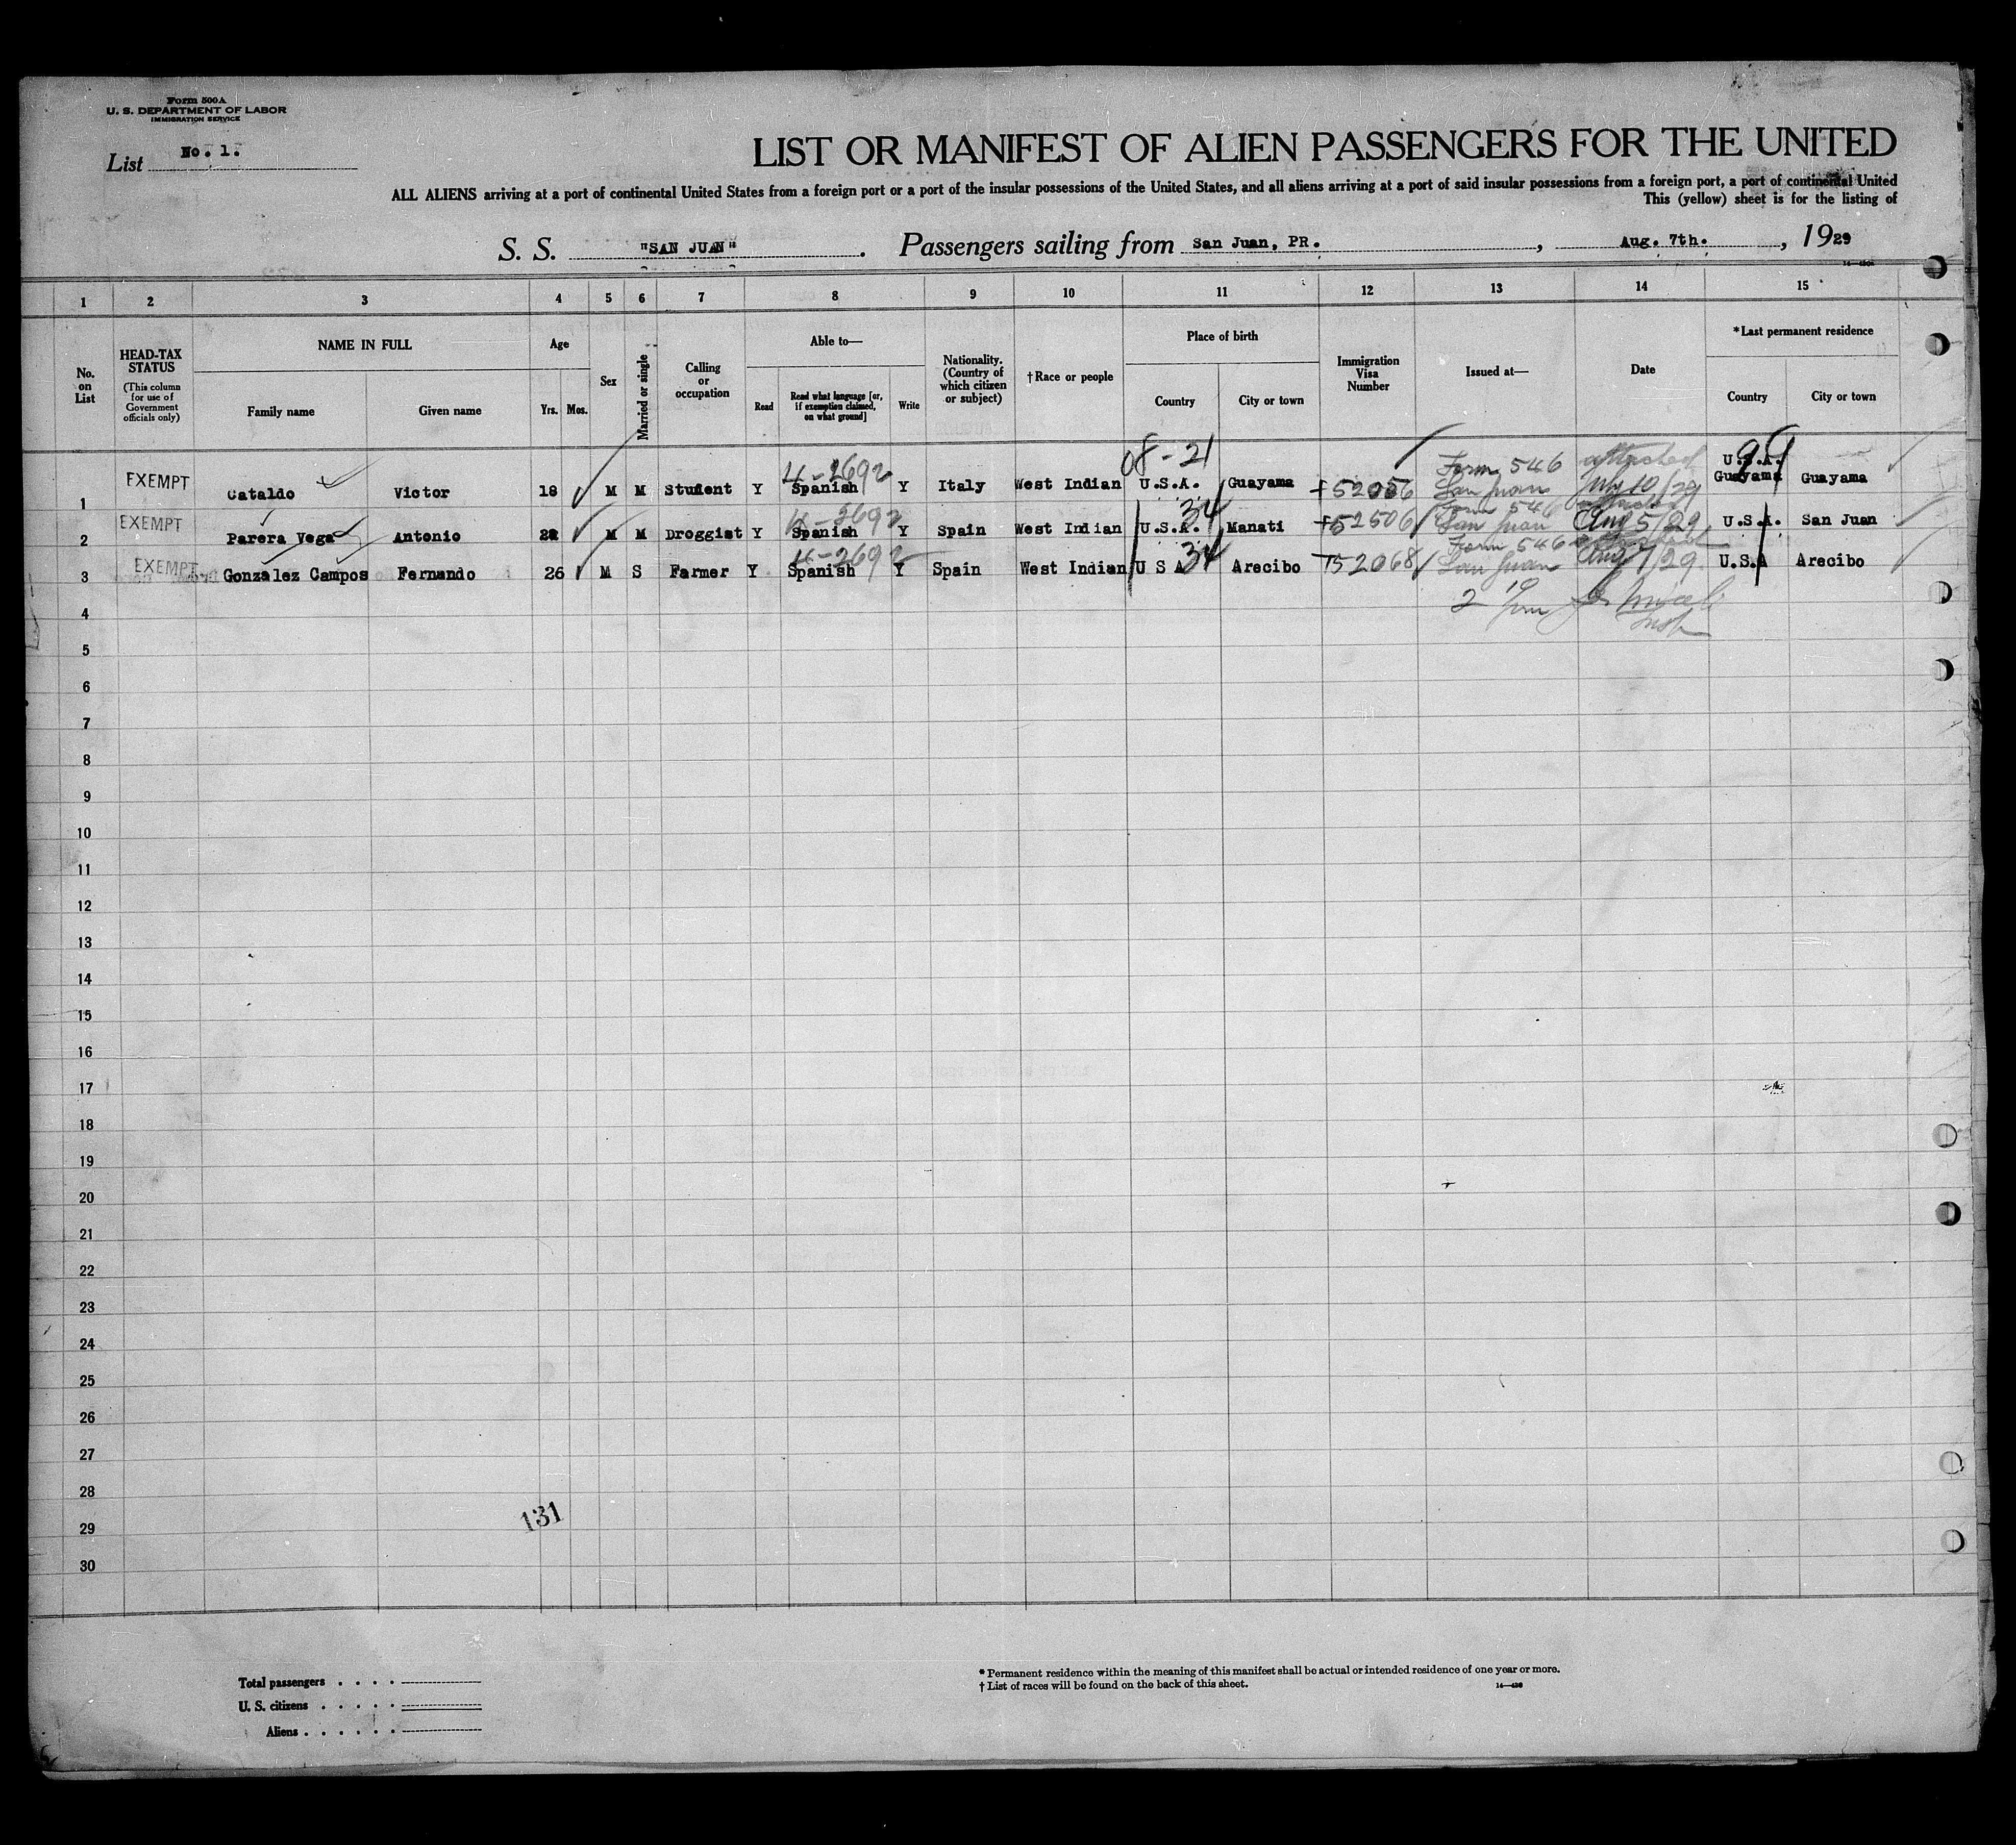 Form 500A
U. S. DEPARTMENT OF LABOR
IMMIGRATION SERVICE
List No. 1.
LIST OR MANIFEST OF ALIEN PASSENGERS FOR THE UNITED
ALL ALIENS arriving at a port of continental United States from a foreign port or a port of the insular possessions of the United States, and all aliens arriving at a port of said insular possessions from a foreign port, a port of continental United
This (yellow) sheet is for the listing of
S. S. "SAN JUAN". Passengers sailing from San Juan, PR., Aug. 7th., 1929
1 2 3 4 5 6 7 8 9 10 11 12 13 14 15
No. on List
HEAD-TAX STATUS
(This column for use of Government officials only)
NAME IN FULL
Family name Given name
Age
Yrs. Mos.
Sex
Married or single
Calling or occupation
Able to—
Read
Read what language [or, if exemption claimed, on what ground]
Write
Nationality. (Country of which citizen or subject)
†Race or people
Place of birth
Country City or town
Immigration Visa Number
Issued at—
Date
*Last permanent residence
Country City or town
08-21
4-2692
Form 546 attached
99
1 EXEMPT Cataldo Victor 18 M M Student Y Spanish Y Italy West Indian U.S.A. Guayama 52056 San Juan July 10/29 U.S.A. Guayama Guayama
4-2692
34
Form 546 attached
2 EXEMPT Parera Vega Antonio 22 M M Droggist Y Spanish Y Spain West Indian U.S.A. Manati 52506 San Juan Aug 5/29 U.S.A. San Juan
4-2692
34
Form 546 attached
3 EXEMPT Gonzalez Campos Fernando 26 M S Farmer Y Spanish Y Spain West Indian U S A Arecibo 52068 San Juan Aug 7/29 U.S.A Arecibo
4
5
6
7
8
9
10
11
12
13
14
15
16
17
18
19
20
21
22
23
24
25
26
27
28
29
30
131
Total passengers . . . .
U. S. citizens . . . . .
Aliens . . . . . .
* Permanent residence within the meaning of this manifest shall be actual or intended residence of one year or more.
† List of races will be found on the back of this sheet.